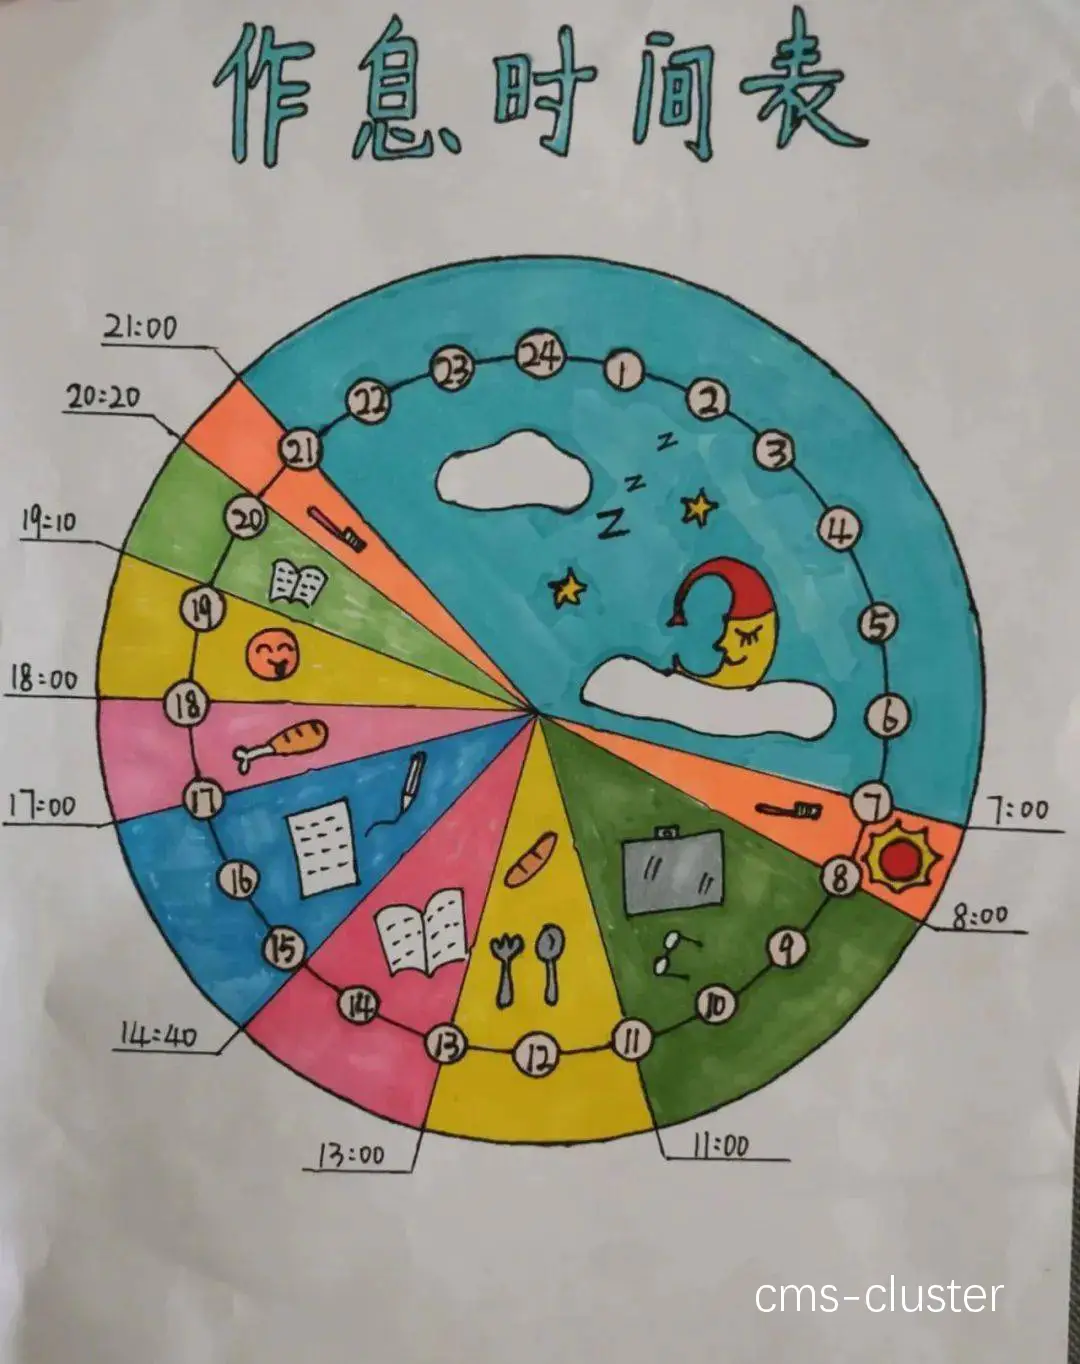 作息时间表
21:00
20:20
19:10
18:00
17:00
14:40
13:00
11:00
8:00
7:00
24
1
2
3
4
5
6
7
8
9
10
11
12
13
14
15
16
17
18
19
20
21
22
23
z
z
Z
cms-cluster